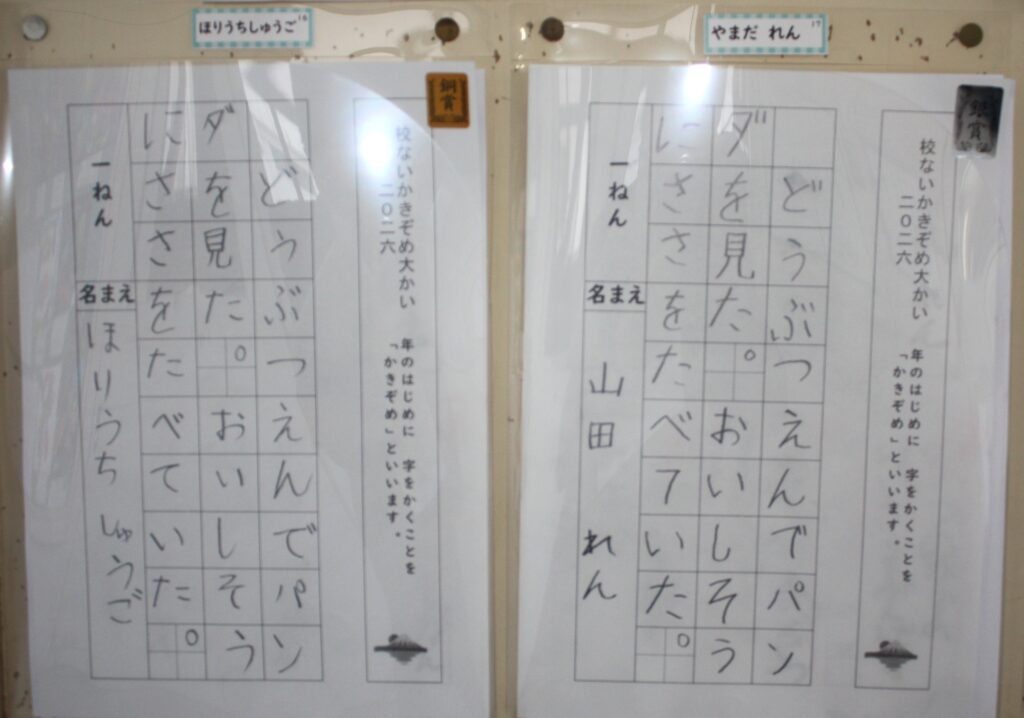 ほりうちしゅうご 16
銅賞
校ないかきぞめ大かい
二〇二六
年のはじめに 字をかくことを
「かきぞめ」といいます。
どうぶつえんでパン
ダを見た。おいしそう
にささをたべていた。
一ねん
名まえ
ほりうち しゅうご
やまだ れん 17
銀賞
校ないかきぞめ大かい
二〇二六
年のはじめに 字をかくことを
「かきぞめ」といいます。
どうぶつえんでパン
ダを見た。おいしそう
にささをたべていた。
一ねん
名まえ
山田 れん